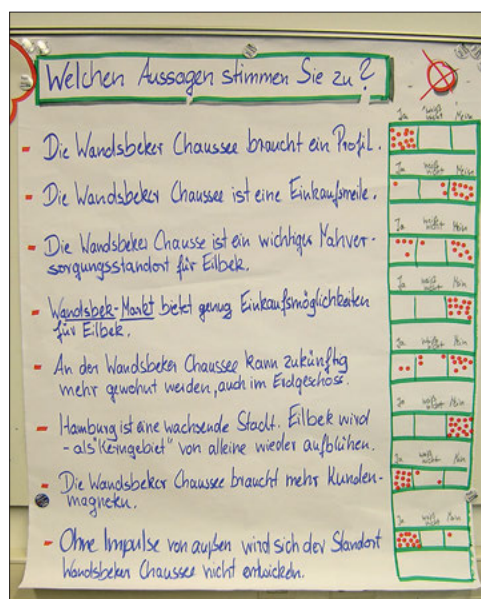 Welchen Aussagen stimmen Sie zu?
Ja weiß nicht Nein
- Die Wandsbeker Chaussee braucht ein Profil.
Ja weiß nicht Nein
- Die Wandsbeker Chaussee ist eine Einkaufsmeile.
Ja weiß nicht Nein
- Die Wandsbeker Chausse ist ein wichtiger Nahver-
sorgungsstandort für Eilbek.
Ja weiß nicht Nein
- Wandsbek-Markt bietet genug Einkaufsmöglichkeiten
für Eilbek.
Ja weiß nicht Nein
- An der Wandsbeker Chaussee kann zukünftig
mehr gewohnt werden, auch im Erdgeschoss.
Ja weiß nicht Nein
- Hamburg ist eine wachsende Stadt. Eilbek wird
- als "Kerngebiet" von alleine wieder aufblühen.
Ja weiß nicht Nein
- Die Wandsbeker Chaussee braucht mehr Kunden-
magneten.
Ja weiß nicht Nein
- Ohne Impulse von außen wird sich der Standort
Wandsbeker Chaussee nicht entwickeln.